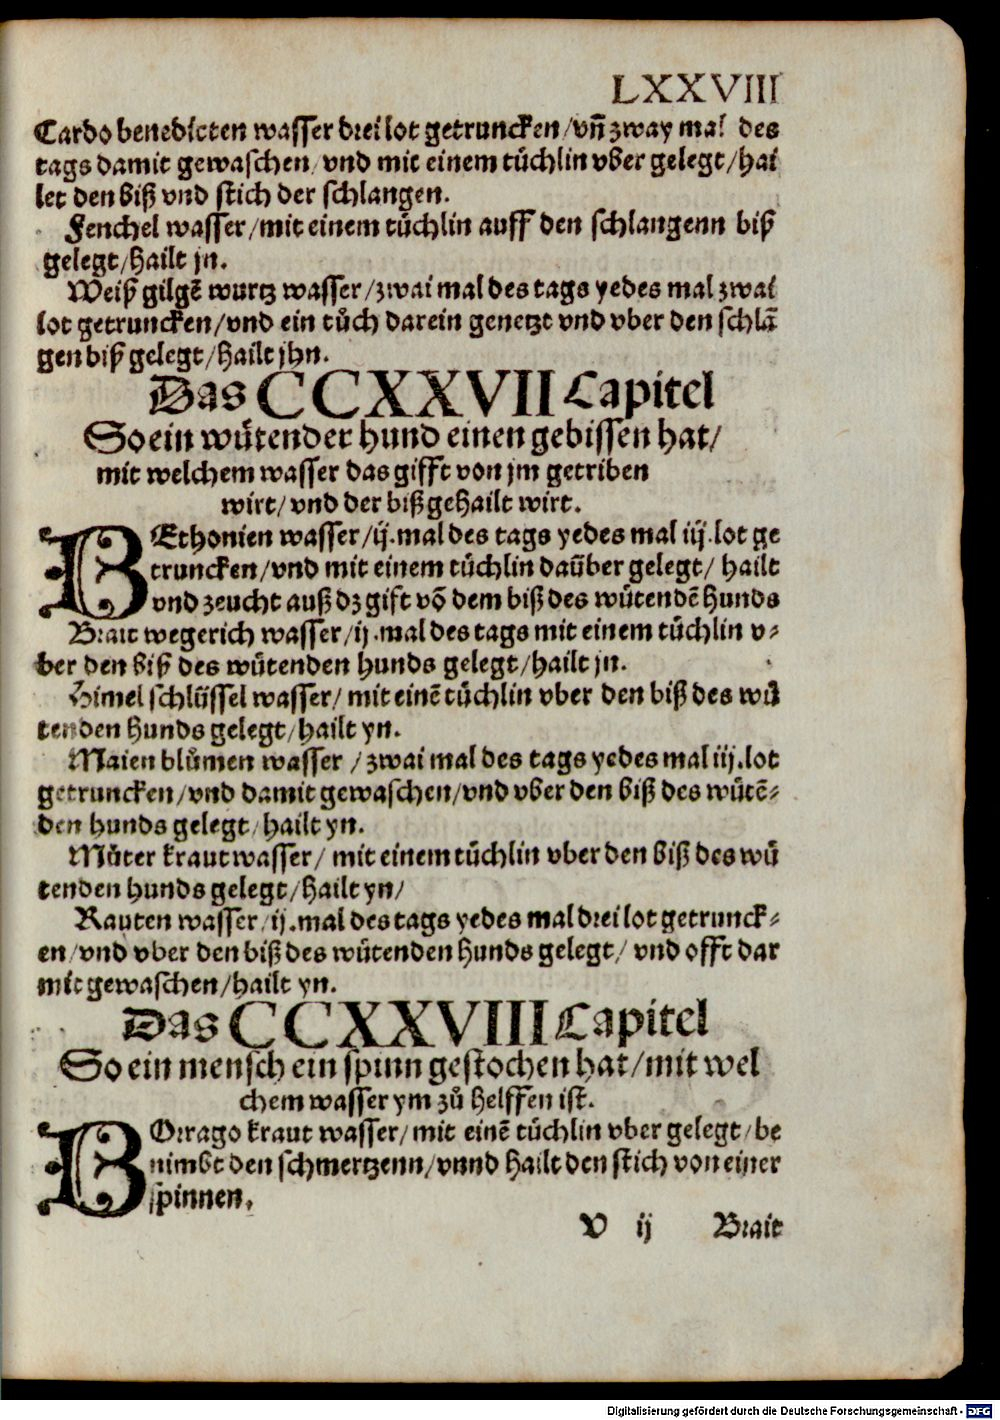 LXXVIII
Cardo benedicten wasser drei lot getruncken/vñ zway mal des
tags damit gewaschen/vnd mit einem tuͤchlin vber gelegt/hai
let den biß vnd stich der schlangen.
Fenchel wasser/mit einem tuͤchlin auff den schlangenn biß
gelegt/hailt jn.
Weiß gilgẽ wurtz wasser/zwai mal des tags yedes mal zwai
lot getruncken/vnd ein tuͤch darein genetzt vnd vber den schlã
gen biß gelegt/hailt jhn.
Das CCXXVII Capitel
So ein wuͤtender hund einen gebissen hat/
mit welchem wasser das gifft von jm getriben
wirt/vnd der biß gehailt wirt.
BEthonien wasser/ij.mal des tags yedes mal iij.lot ge
truncken/vnd mit einem tuͤchlin daruͤber gelegt/ hailt
vnd zeucht auß dz gift võ dem biß des wuͤtendẽ hunds
Brait wegerich wasser/ij.mal des tags mit einem tuͤchlin v⸗
ber den biß des wuͤtenden hunds gelegt/hailt jn.
Himel schlüssel wasser/ mit einẽ tuͤchlin vber den biß des wuͤ
tenden hunds gelegt/hailt yn.
Maien bluͦmen wasser / zwai mal des tags yedes mal iij.lot
getruncken/vnd damit gewaschen/vnd vber den biß des wuͤtẽ⸗
den hunds gelegt/hailt yn.
Muͦter kraut wasser/ mit einem tuͤchlin vber den biß des wuͤ
tenden hunds gelegt/hailt yn/
Rauten wasser/ij.mal des tags yedes mal drei lot getrunck⸗
en/vnd vber den biß des wuͤtenden hunds gelegt/ vnd offt dar
mit gewaschen/hailt yn.
Das CCXXVIII Capitel
So ein mensch ein spinn gestochen hat/mit wel
chem wasser ym zuͦ helffen ist.
BOrrago kraut wasser/mit einẽ tuͤchlin vber gelegt/be
nimbt den schmertzenn/vnnd hailt den stich von einer
spinnen.
V ij Brait
Digitalisierung gefördert durch die Deutsche Forschungsgemeinschaft - DFG